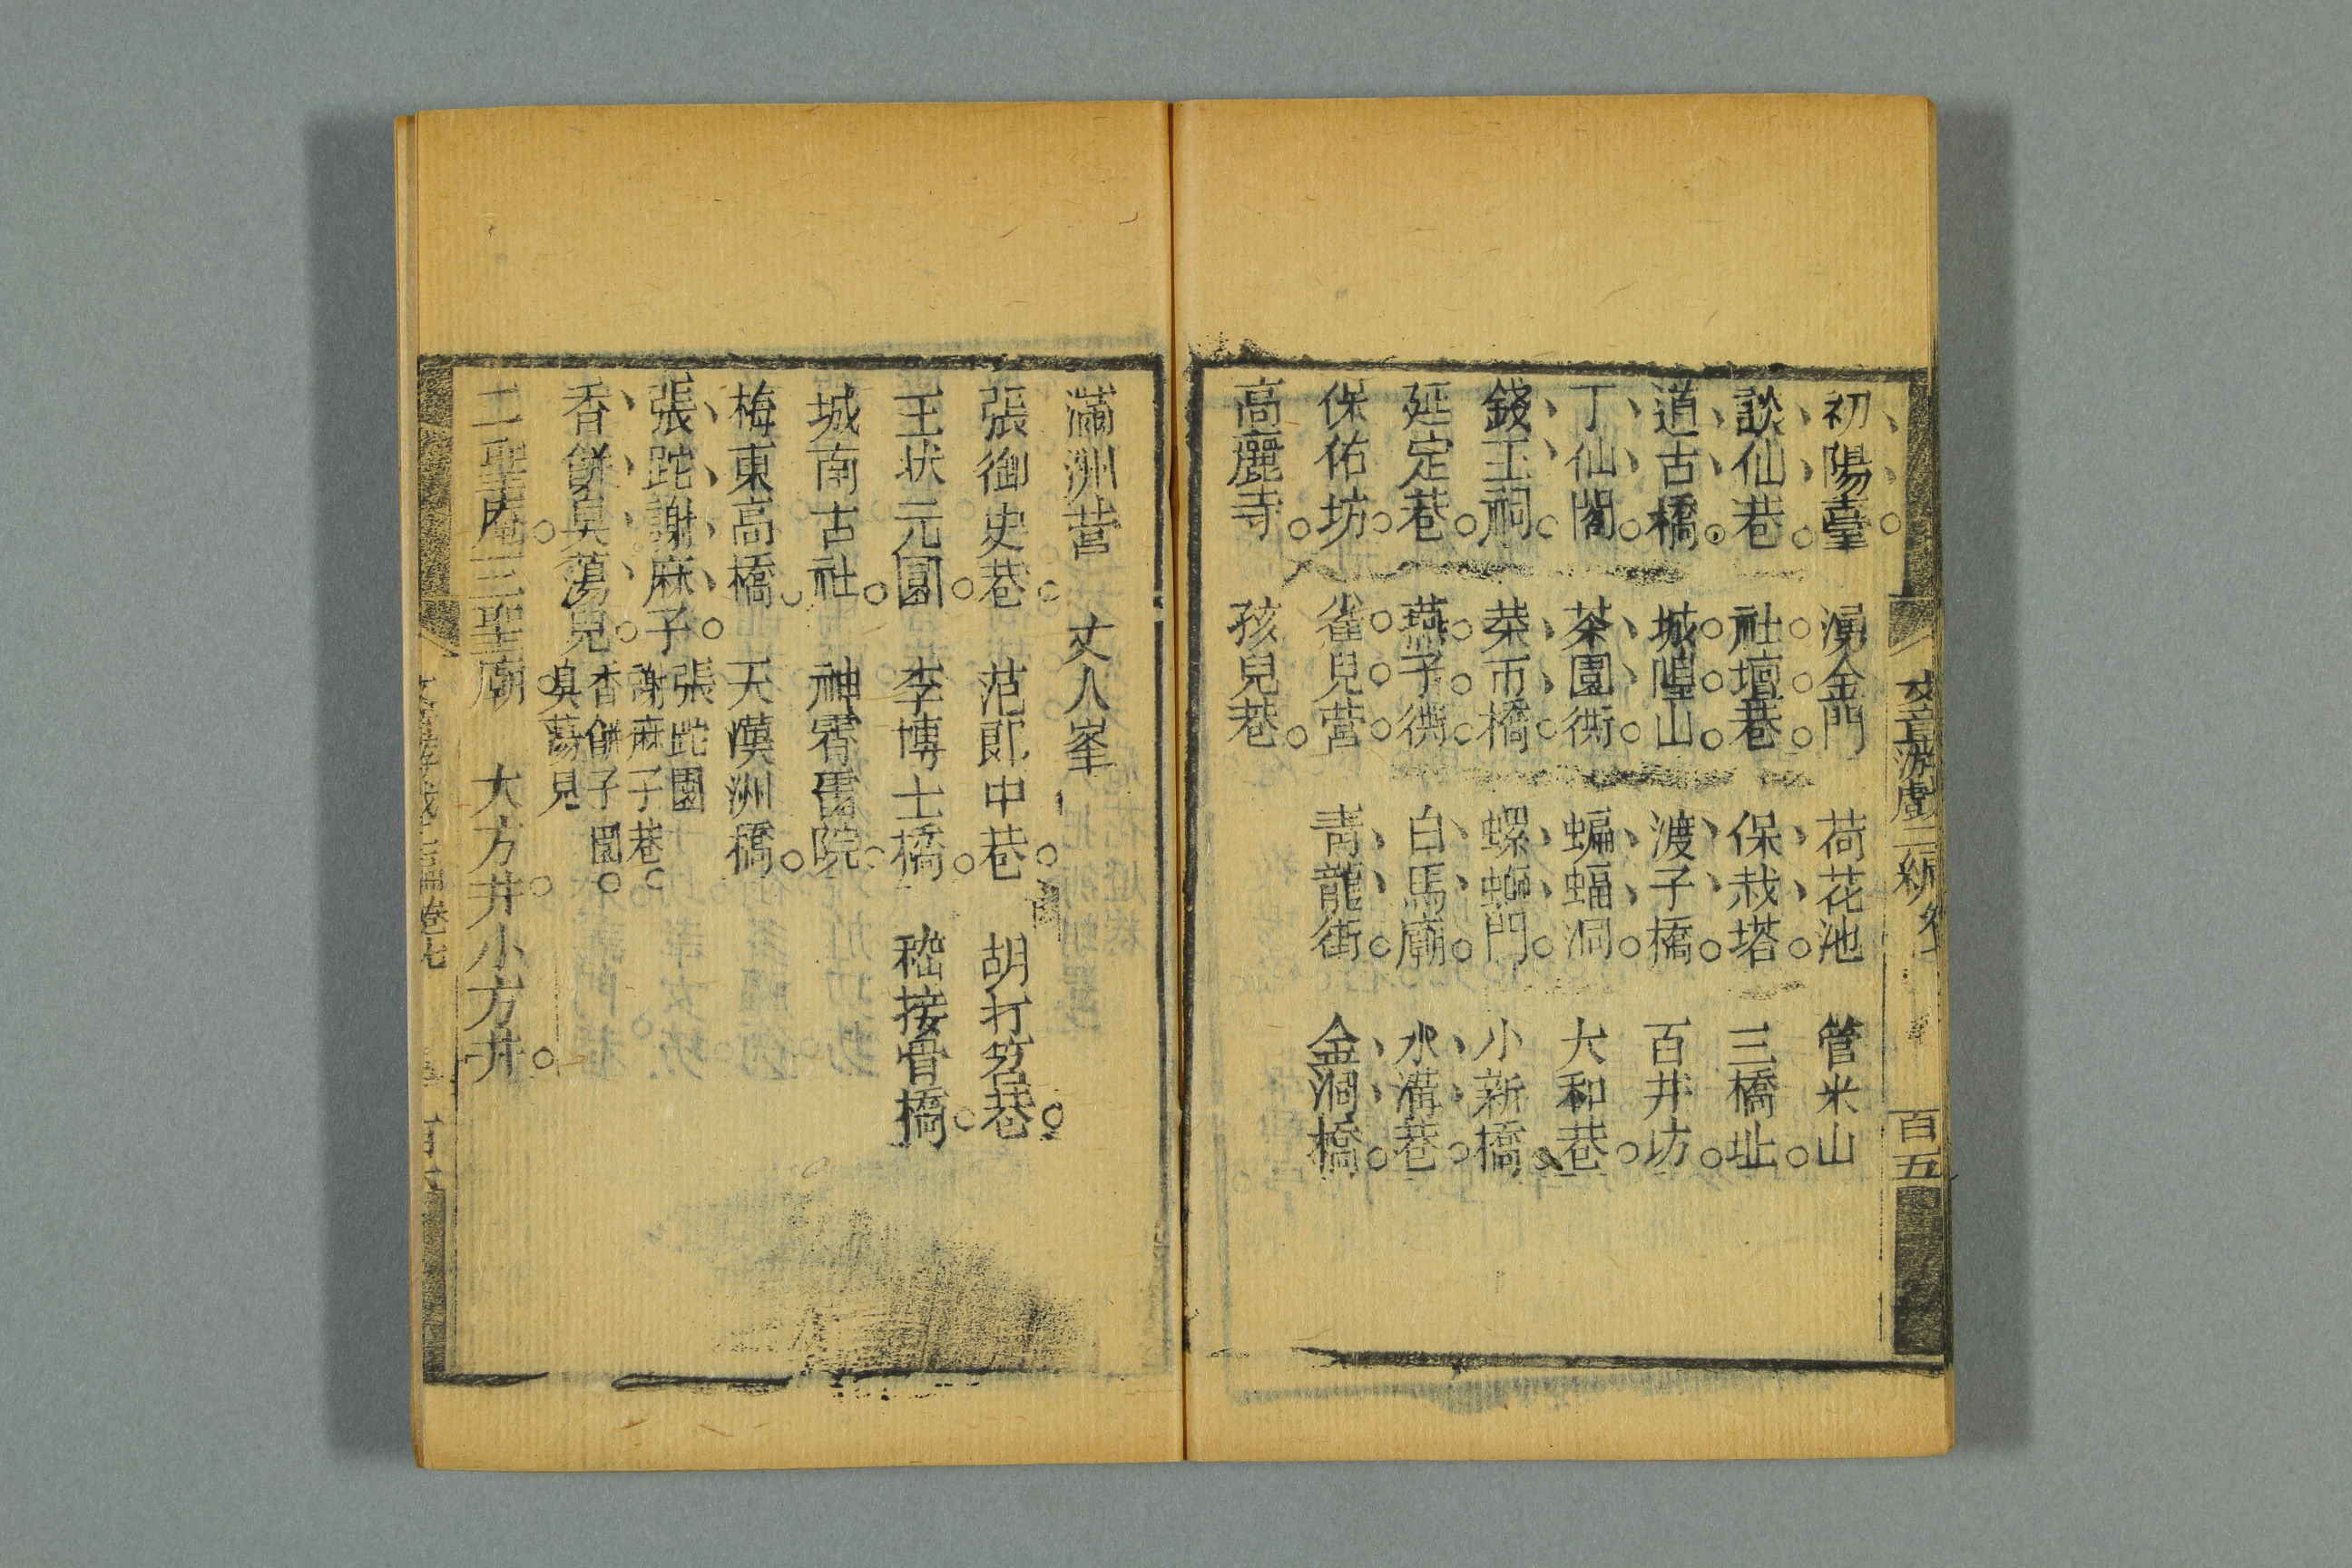 文章游戲三編 卷七 百五
初陽臺 湧金門 荷花池 管米山
談仙巷 社壇巷 保叔塔 三橋址
道古橋 城隍山 渡子橋 百井坊
丁仙閣 茶園衖 蝙蝠洞 大和巷
錢王祠 菜市橋 螺螄門 小新橋
延定巷 燕子衖 白馬廟 水溝巷
保佑坊 雀兒營 青龍街 金洞橋
高麗寺 孩兒巷
滿洲營 丈人峯
張御史巷 范郎中巷 胡打笤巷
王狀元園 李博士橋 嵇接骨橋
城南古社 神霄雷院
梅東高橋 天漢洲橋
張跎謝麻子 張跎園 謝麻子巷
香餅臭蕩兒 香餅子園 臭蕩兒
二聖庵三聖廟 大方井小方井
卷七